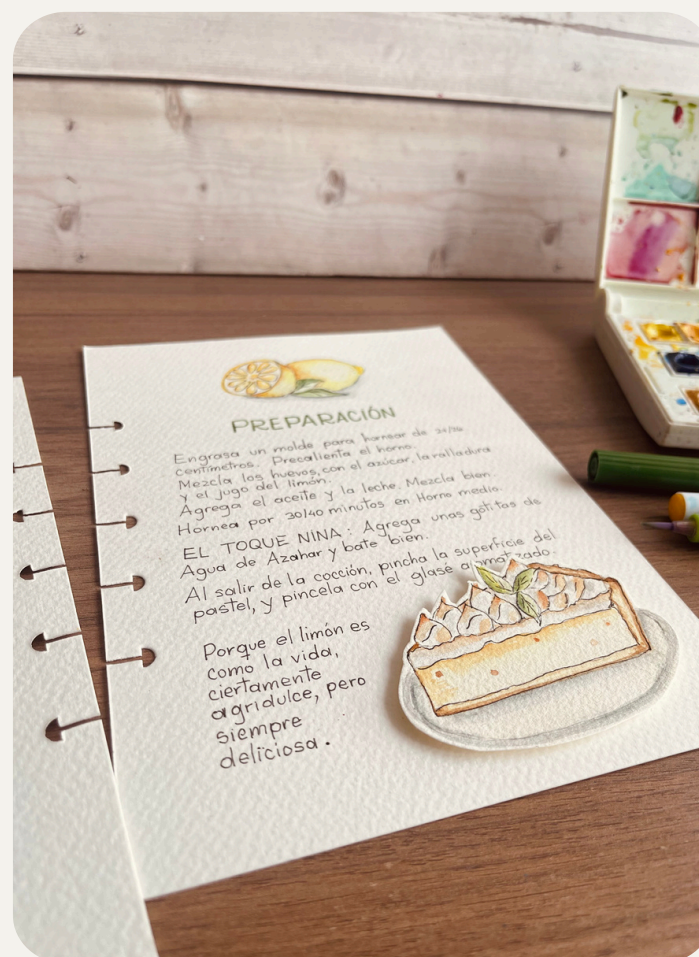 PREPARACIÓN
Engrasa un molde para hornear de
centímetros. Precalienta el horno.
Mezcla los huevos, con el azúcar, la ralladura
y el jugo del limón.
Agrega el aceite y la leche. Mezcla bien.
Hornea por 30/40 minutos en Horno medio.
EL TOQUE NINA: Agrega unas gotitas de
Agua de Azahar y bate bien.
Al salir de la cocción, pincha la superficie del
pastel, y pincela con el glasé
Porque el limón es
como la vida,
ciertamente
agridulce, pero
siempre
deliciosa.